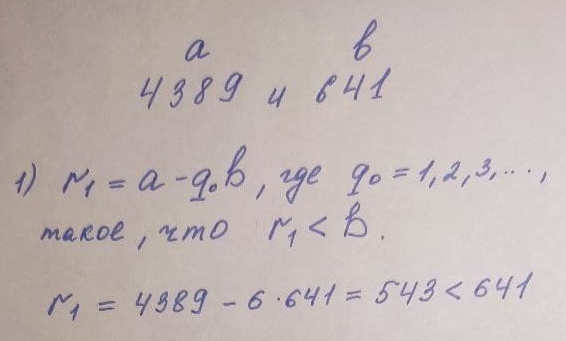 a в
4389 и 641
1) r₁ = a - q₀в, где q₀ = 1, 2, 3, ...,
такое, что r₁ < в.
r₁ = 4389 - 6 · 641 = 543 < 641